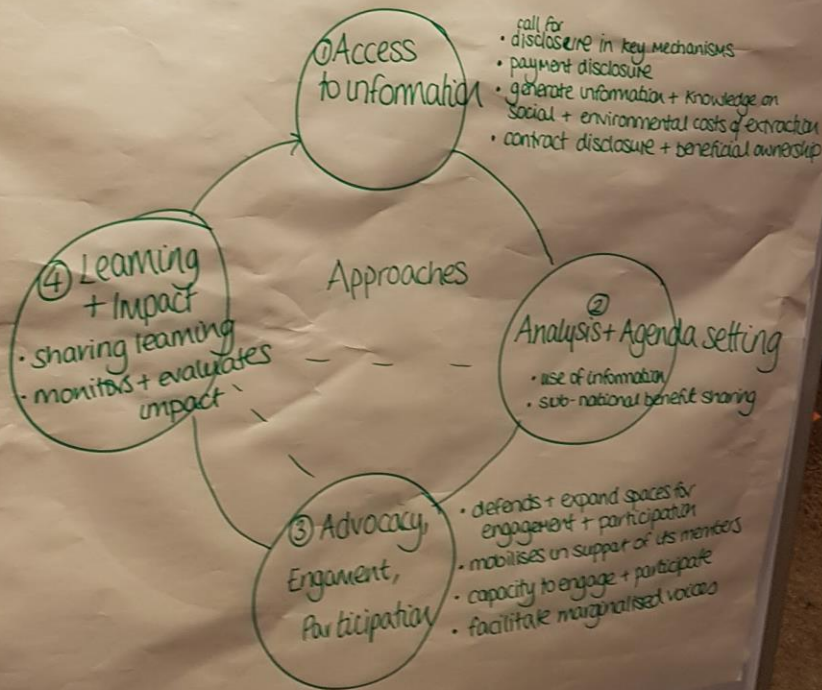 ① Access
to information
call for
• disclosure in key mechanisms
• payment disclosure
• generate information + knowledge on
social + environmental costs of extraction
• contract disclosure + beneficial ownership
Approaches
②
Analysis + Agenda setting
• use of information
• sub-national benefit sharing
③ Advocacy,
Engament,
Participation
• defends + expand spaces for
engagement + participation
• mobilises in support of its members
• capacity to engage + participate
• facilitate marginalised voices
④ Learning
+ Impact
• sharing learning
• monitors + evaluates
impact